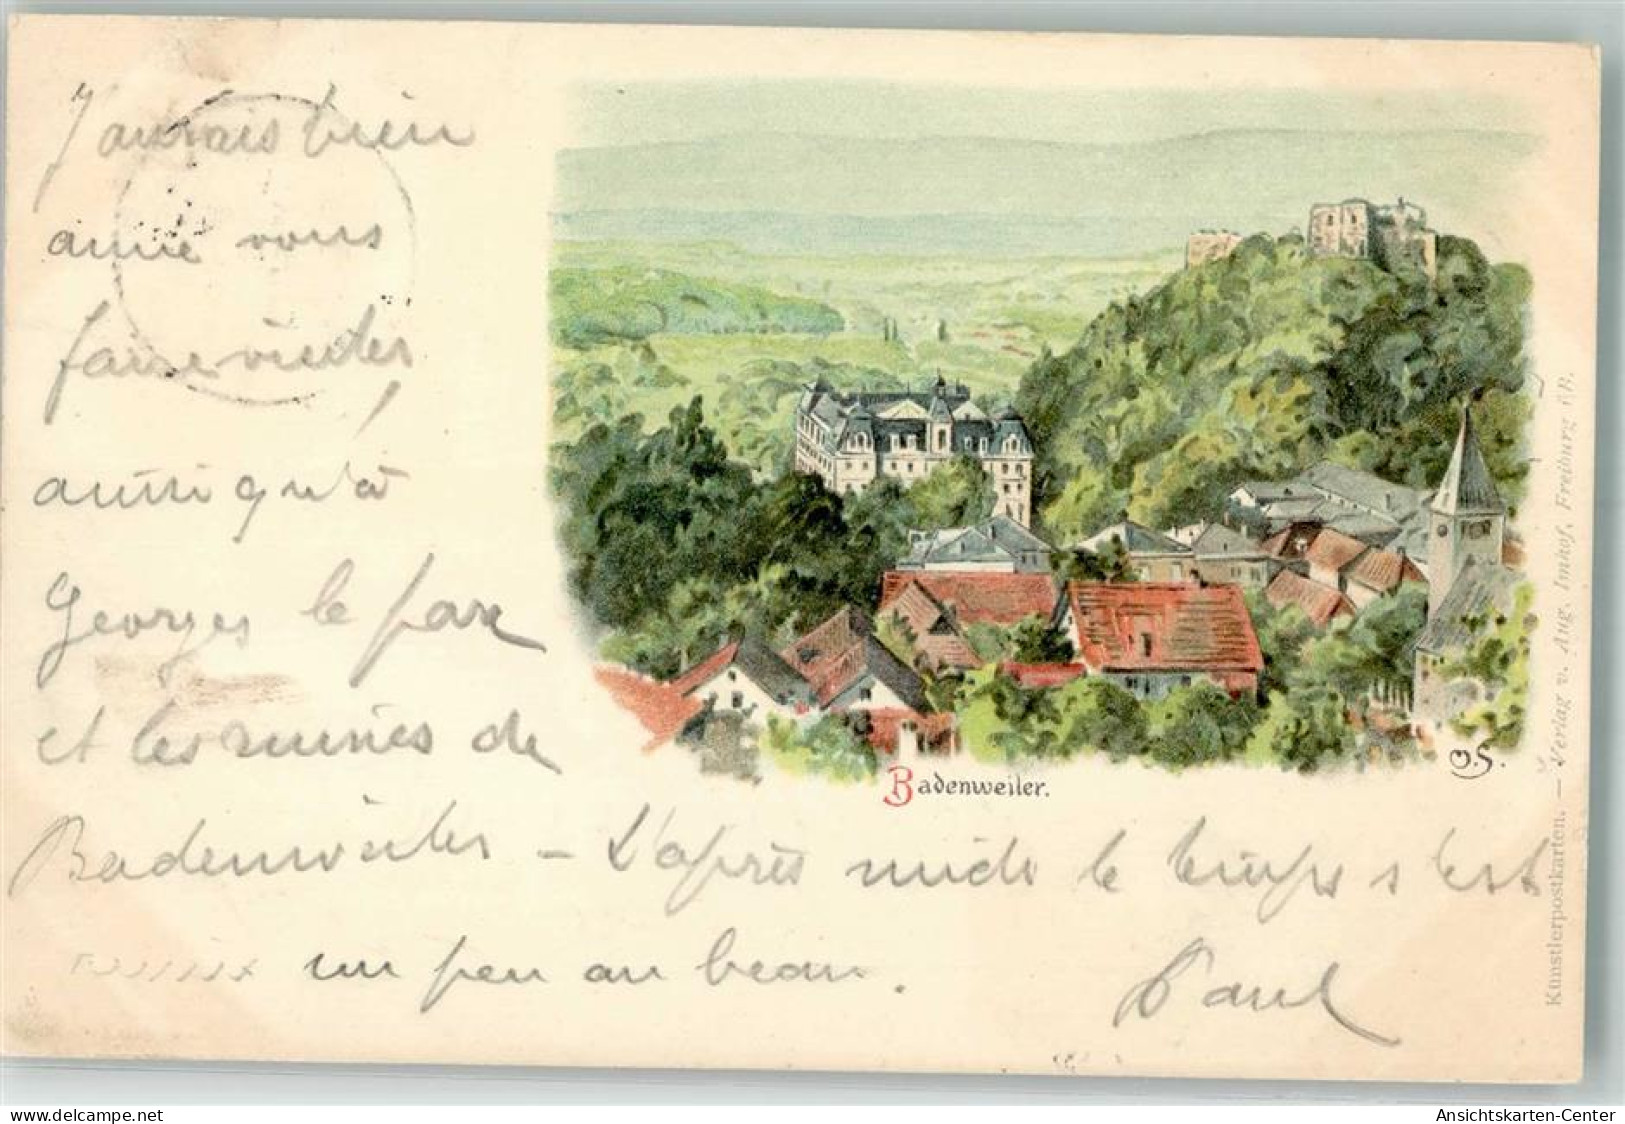 J'aurais bien
aimé vous
faire visiter
aussi qu'à
Georges le parc
et les ruines de
Badenweiler – L'après midi le temps s'est
un peu au beau.
Paul
Badenweiler.
Künstlerpostkarten. — Verlag v. Aug. Imhof, Freiburg i/B.
delcampe.net
Ansichtskarten-Center